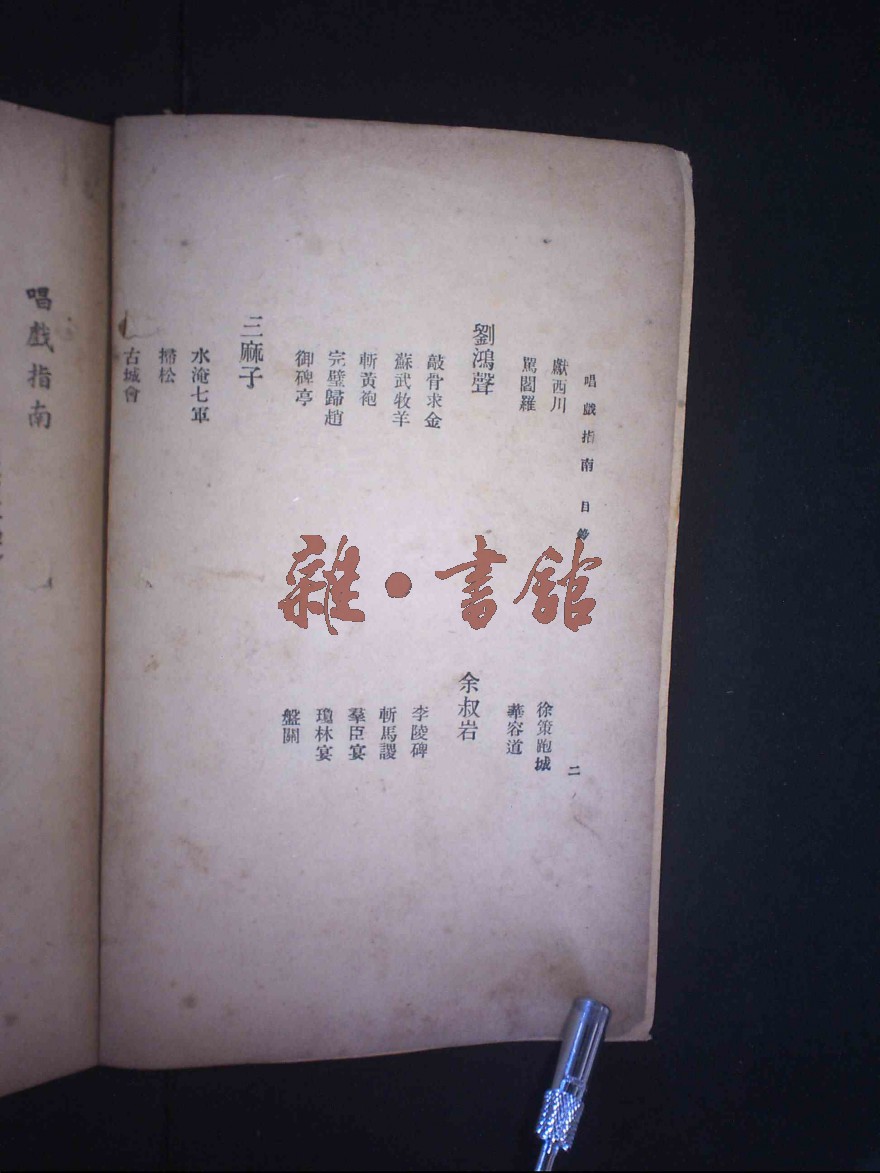 唱戲指南 目錄
二
獻西川
罵閻羅
劉鴻聲
敲骨求金
蘇武牧羊
斬黃袍
完璧歸趙
御碑亭
三麻子
水淹七軍
掃松
古城會
徐策跑城
華容道
余叔岩
李陵碑
斬馬謖
羣臣宴
瓊林宴
盤關
雜·書館
唱戲指南